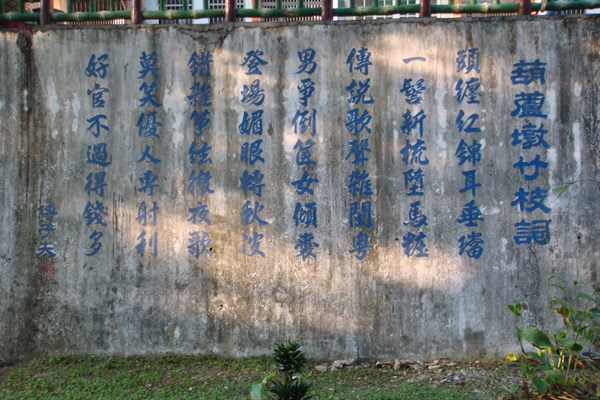 葫蘆墩竹枝詞
頭纏紅錦耳垂璫
一髻新梳墮馬粧
傳說歌聲雜閩粵
男爭倒篋女傾囊
登場媚眼轉秋波
錯雜箏絃徹夜歌
莫笑優人專射利
好官不過得錢多
傅于天